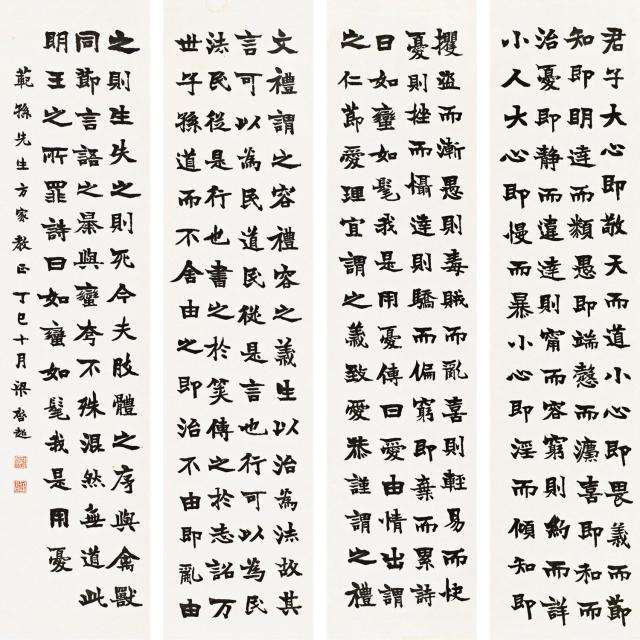 君子大心即敬天而道小心即畏義而節
知即明達而類愚即端愨而灋喜即和而
治憂即静而違達則甯而容窮則約而詳
小人大心即慢而暴小心即淫而傾知即
攫盜而漸愚則毒賊而亂喜則輕易而快
憂則挫而懾達則驕而偏窮即棄而累詩
曰如蠻如髦我是用憂傳曰愛由情出謂
之仁節愛理宜謂之義致愛恭謹謂之禮
文禮謂之容禮容之義生以治為法故其
言可以為民道民從是言也行可以為民
法民從是行也書之於筴傳之於志詔万
世子孫道而不舍由之即治不由即亂由
之則生失之則死今夫肢體之序與禽獸
同節言語之暴與蠻夷不殊混然無道此
明王之所罪詩曰如蠻如髦我是用憂
範孫先生方家教正丁巳十月梁啓超